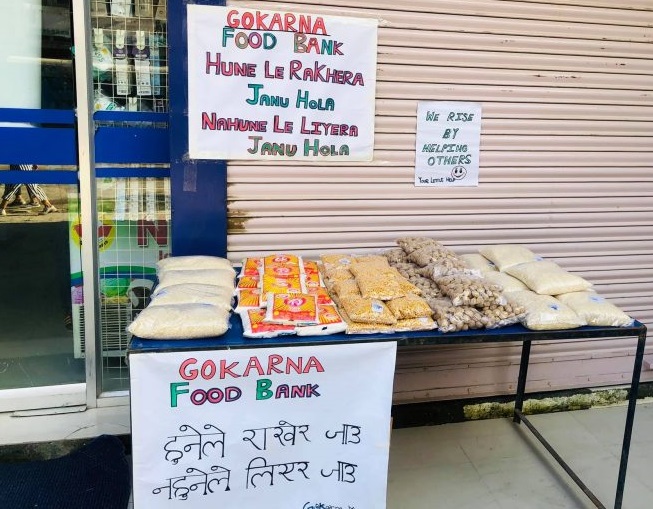 GOKARNA
FOOD BANK
HUNE LE RAKHERA
JANU HOLA
NAHUNE LE LIYERA
JANU HOLA
WE RISE
BY
HELPING
OTHERS
GOKARNA
FOOD BANK
हुनेले राखेर जाउ
नहुनेले लिएर जाउ